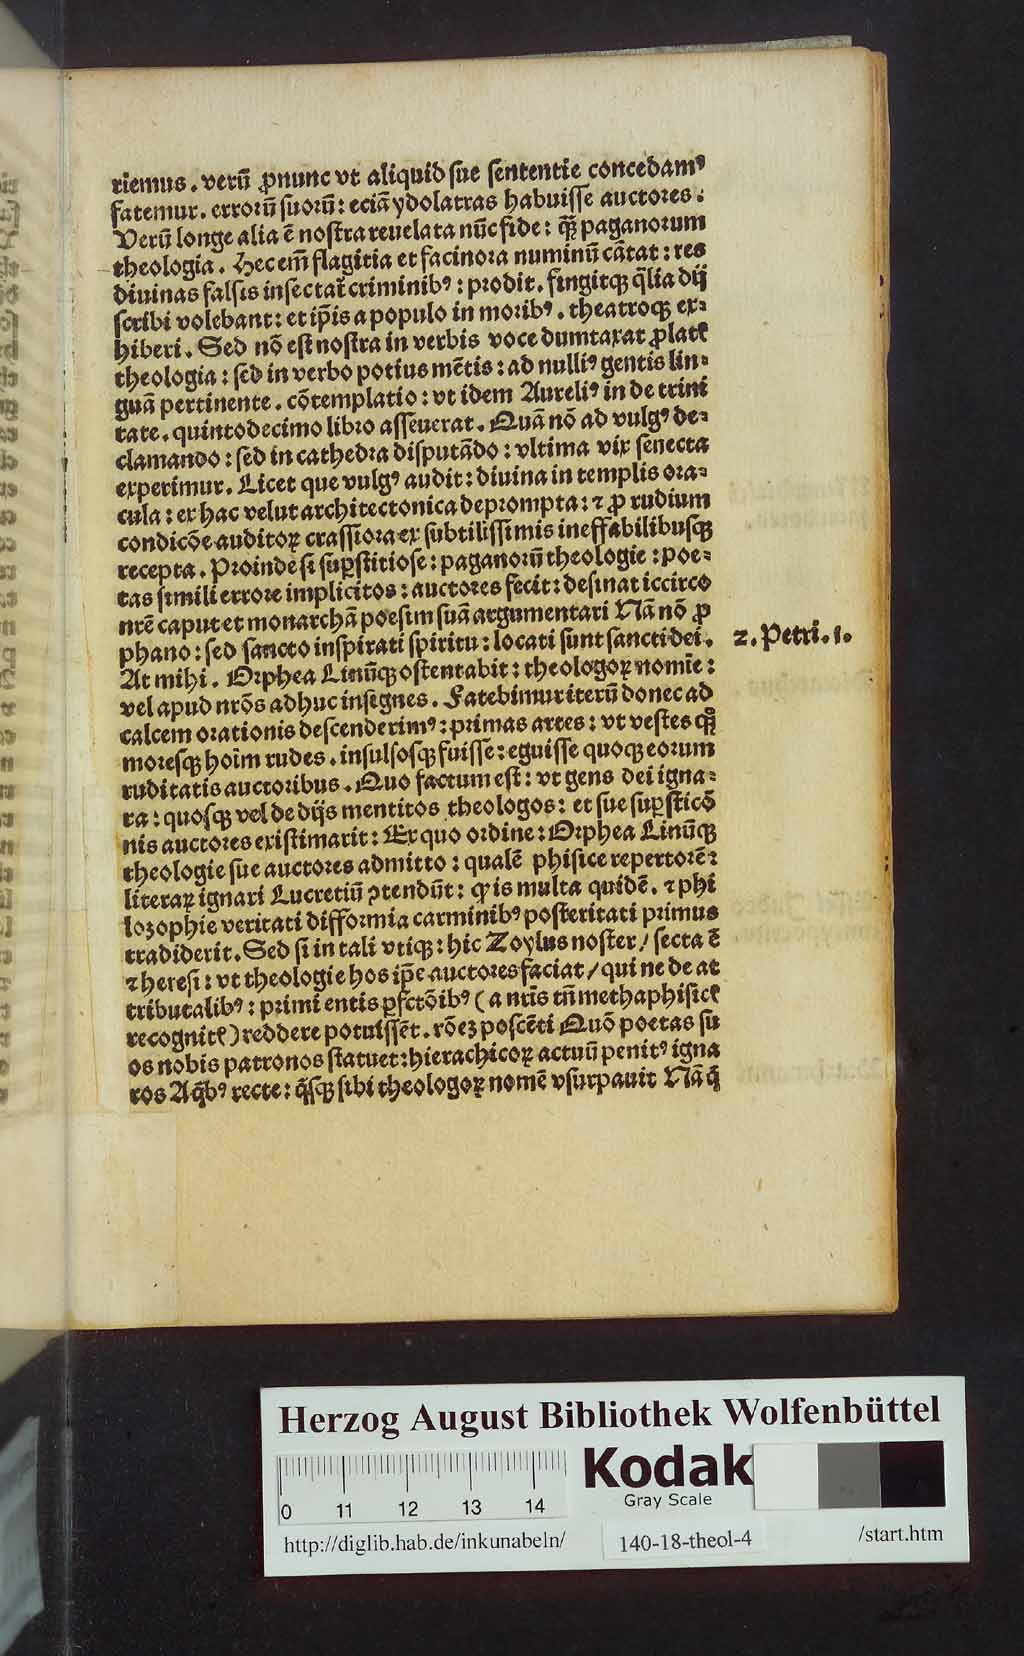 riemus. verū ꝓnunc vt aliquid sue sententie concedamꝰ
fatemur. errorū suorū: eciā ydolatras habuisse auctores:
Verū longe alia ē nostra reuelata nūc fide: qȝ̄ paganorum
theologia. Hec em̄ flagitia et facinora numinū cātat: res
diuinas falsis insectat̄ criminibꝰ: prodit. fingitqꝫ q̄lia dij
scribi volebant: et ip̄is a populo in moribꝰ. theatroqꝫ ex-
hiberi. Sed nō est nostra in verbis voce dumtaxat ꝓlate
theologia: sed in verbo potius mētis: ad nulliꝰ gentis lin-
guā pertinente. cōtemplatio: vt idem Aureliꝰ in de trini
tate. quintodecimo libro asseuerat. Quā nō ad vulgꝰ de-
clamando: sed in cathedra disputādo: vltima vix senecta
experimur. Licet que vulgꝰ audit: diuina in templis ora-
cula: ex hac velut architectonica deprompta: ⁊ ꝓ rudium
condicōe auditoꝝ crassiora ex subtilissimis ineffabilibusqꝫ
recepta. Proinde si suꝑstitiose: paganorū theologie: poe-
tas simili errore implicitos: auctores fecit: desinat iccirco
nrē caput et monarchā poesim suā argumentari Nā nō ꝓ
phano: sed sancto inspirati spiritu: locati sunt sancti dei.
2. Petri. 1.
At mihi. Orphea Linūqꝫ ostentabit: theologoꝝ nomīe:
vel apud nrōs adhuc insignes. Fatebimur iterū donec ad
calcem orationis descenderimꝰ: primas artes: vt vestes qȝ̄
moresqꝫ hoīm rudes. insulsosqꝫ fuisse: eguisse quoqꝫ eorum
ruditatis auctoribus. Quo factum est: vt gens dei igna-
ra: quosqꝫ vel de dijs mentitos theologos: et sue suꝑsticō
nis auctores existimarit: Ex quo ordine: Orphea Linūqꝫ
theologie sue auctores admitto: qualē phisice repertorē:
literaꝝ ignari Lucretiū ꝯtendūt: ꝙ is multa quidē. ⁊ phi
lozophie veritati difformia carminibꝰ posteritati primus
tradiderit. Sed si in tali vtiqꝫ: hic Zoylus noster / secta ē
⁊ heresi: vt theologie hos ip̄e auctores faciat / qui ne de at
tributalibꝰ: primi entis ꝑfctōibꝰ (a nrīs tn̄ methaphisice
recognite) reddere potuissēt. rōeꝫ poscēti Quō poetas su
os nobis patronos statuet: hierachicoꝝ actuū penitꝰ igna
ros Aq̄bꝰ recte: q̄sqꝫ sibi theologoꝝ nomē vsurpauit Nā q̄
Herzog August Bibliothek Wolfenbüttel
Kodak
Gray Scale
0 11 12 13 14
http://diglib.hab.de/inkunabeln/ 140-18-theol-4 /start.htm